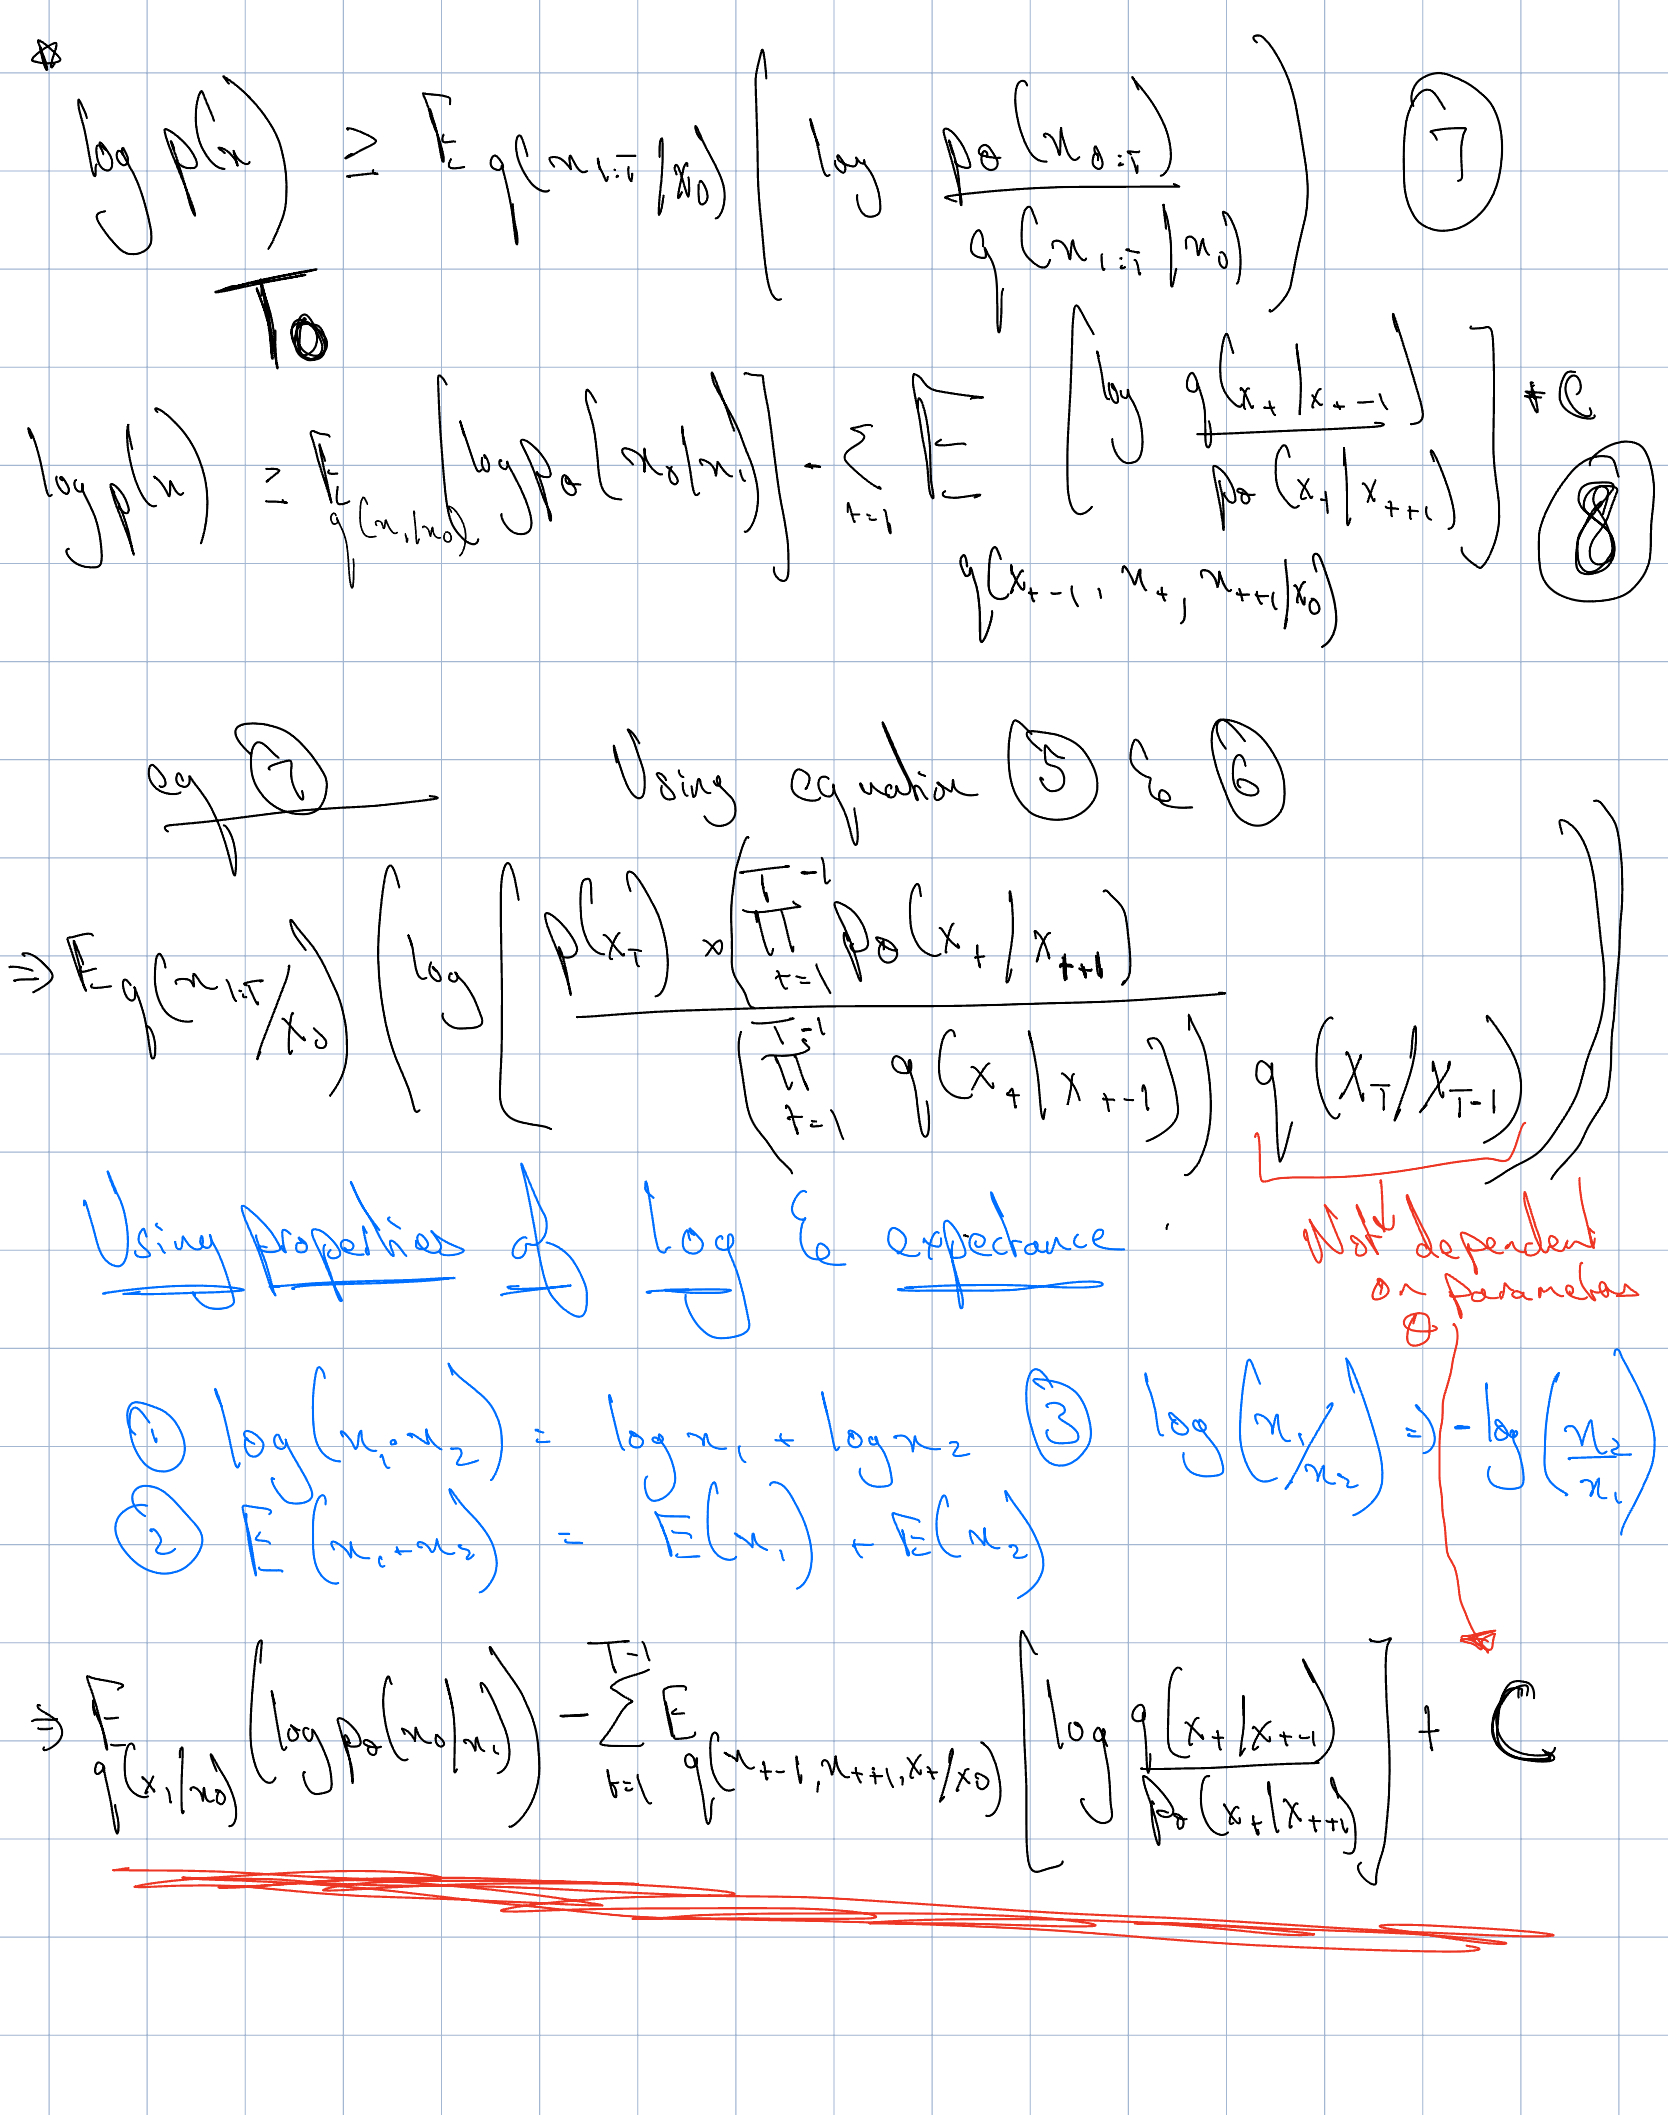 ☆
log p(x) ≥ E_q(x_{1:T}|x_0) ( log p_θ(x_{0:T}) / q(x_{1:T}|x_0) ) ⑦
To
log p(x) ≥ E_q(x_1|x_0) [ log p_θ(x_0|x_1) ] - Σ_{t=1} E_q(x_{t-1}, x_t, x_{t+1}|x_0) [ log q(x_t|x_{t-1}) / p_θ(x_t|x_{t+1}) ] + C ⑧
eq ⑦ Using equation ⑤ & ⑥
⇒ E_q(x_{1:T}/x_0) ( log [ p(x_T) × ( ∏_{t=1}^{T-1} p_θ(x_t|x_{t+1}) / ( ∏_{t=1}^{T-1} q(x_t|x_{t-1}) ) q(x_T/x_{T-1}) ) )
Using properties of log & expectance.
Not dependent
on parameters
θ
① log(x_1·x_2) = log x_1 + log x_2 ③ log(x_1/x_2) ⇒ -log(x_2/x_1)
② E(x_1+x_2) = E(x_1) + E(x_2)
⇒ E_q(x_1|x_0) ( log p_θ(x_0|x_1) ) - Σ_{t=1}^{T-1} E_q(x_{t-1}, x_{t+1}, x_t/x_0) [ log q(x_t|x_{t-1}) / p_θ(x_t|x_{t+1}) ] + C